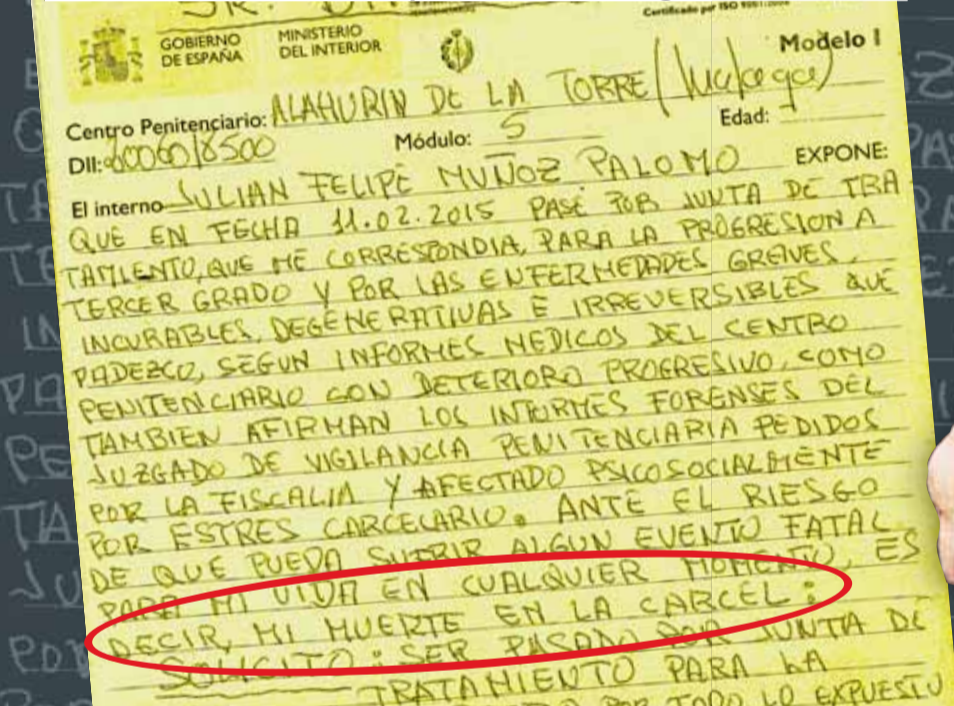 SR. DI
Certificado por ISO 9001:2008
GOBIERNO DE ESPAÑA
MINISTERIO DEL INTERIOR
Modelo I
Centro Penitenciario: ALAHURIN DE LA TORRE (Malaga)
DII: Módulo: 5 Edad:
El interno JULIAN FELIPE MUÑOZ PALOMO EXPONE:
QUE EN FECHA 11.02.2015 PASÉ POR JUNTA DE TRA
TAMIENTO, QUE ME CORRESPONDIA, PARA LA PROGRESION A
TERCER GRADO Y POR LAS ENFERMEDADES GRAVES,
INCURABLES, DEGENERATIVAS E IRREVERSIBLES QUE
PADEZCO, SEGUN INFORMES MEDICOS DEL CENTRO
PENITENCIARIO CON DETERIORO PROGRESIVO, COMO
TAMBIEN AFIRMAN LOS INFORMES FORENSES DEL
JUZGADO DE VIGILANCIA PENITENCIARIA PEDIDOS
POR LA FISCALIA Y AFECTADO PSICOSOCIALMENTE
POR ESTRES CARCELARIO. ANTE EL RIESGO
DE QUE PUEDA SUFRIR ALGUN EVENTO FATAL
PARA MI VIDA EN CUALQUIER MOMENTO, ES
DECIR, MI MUERTE EN LA CARCEL:
SOLICITO: SER PASADO POR JUNTA DE
TRATAMIENTO PARA LA
POR TODO LO EXPUESTO